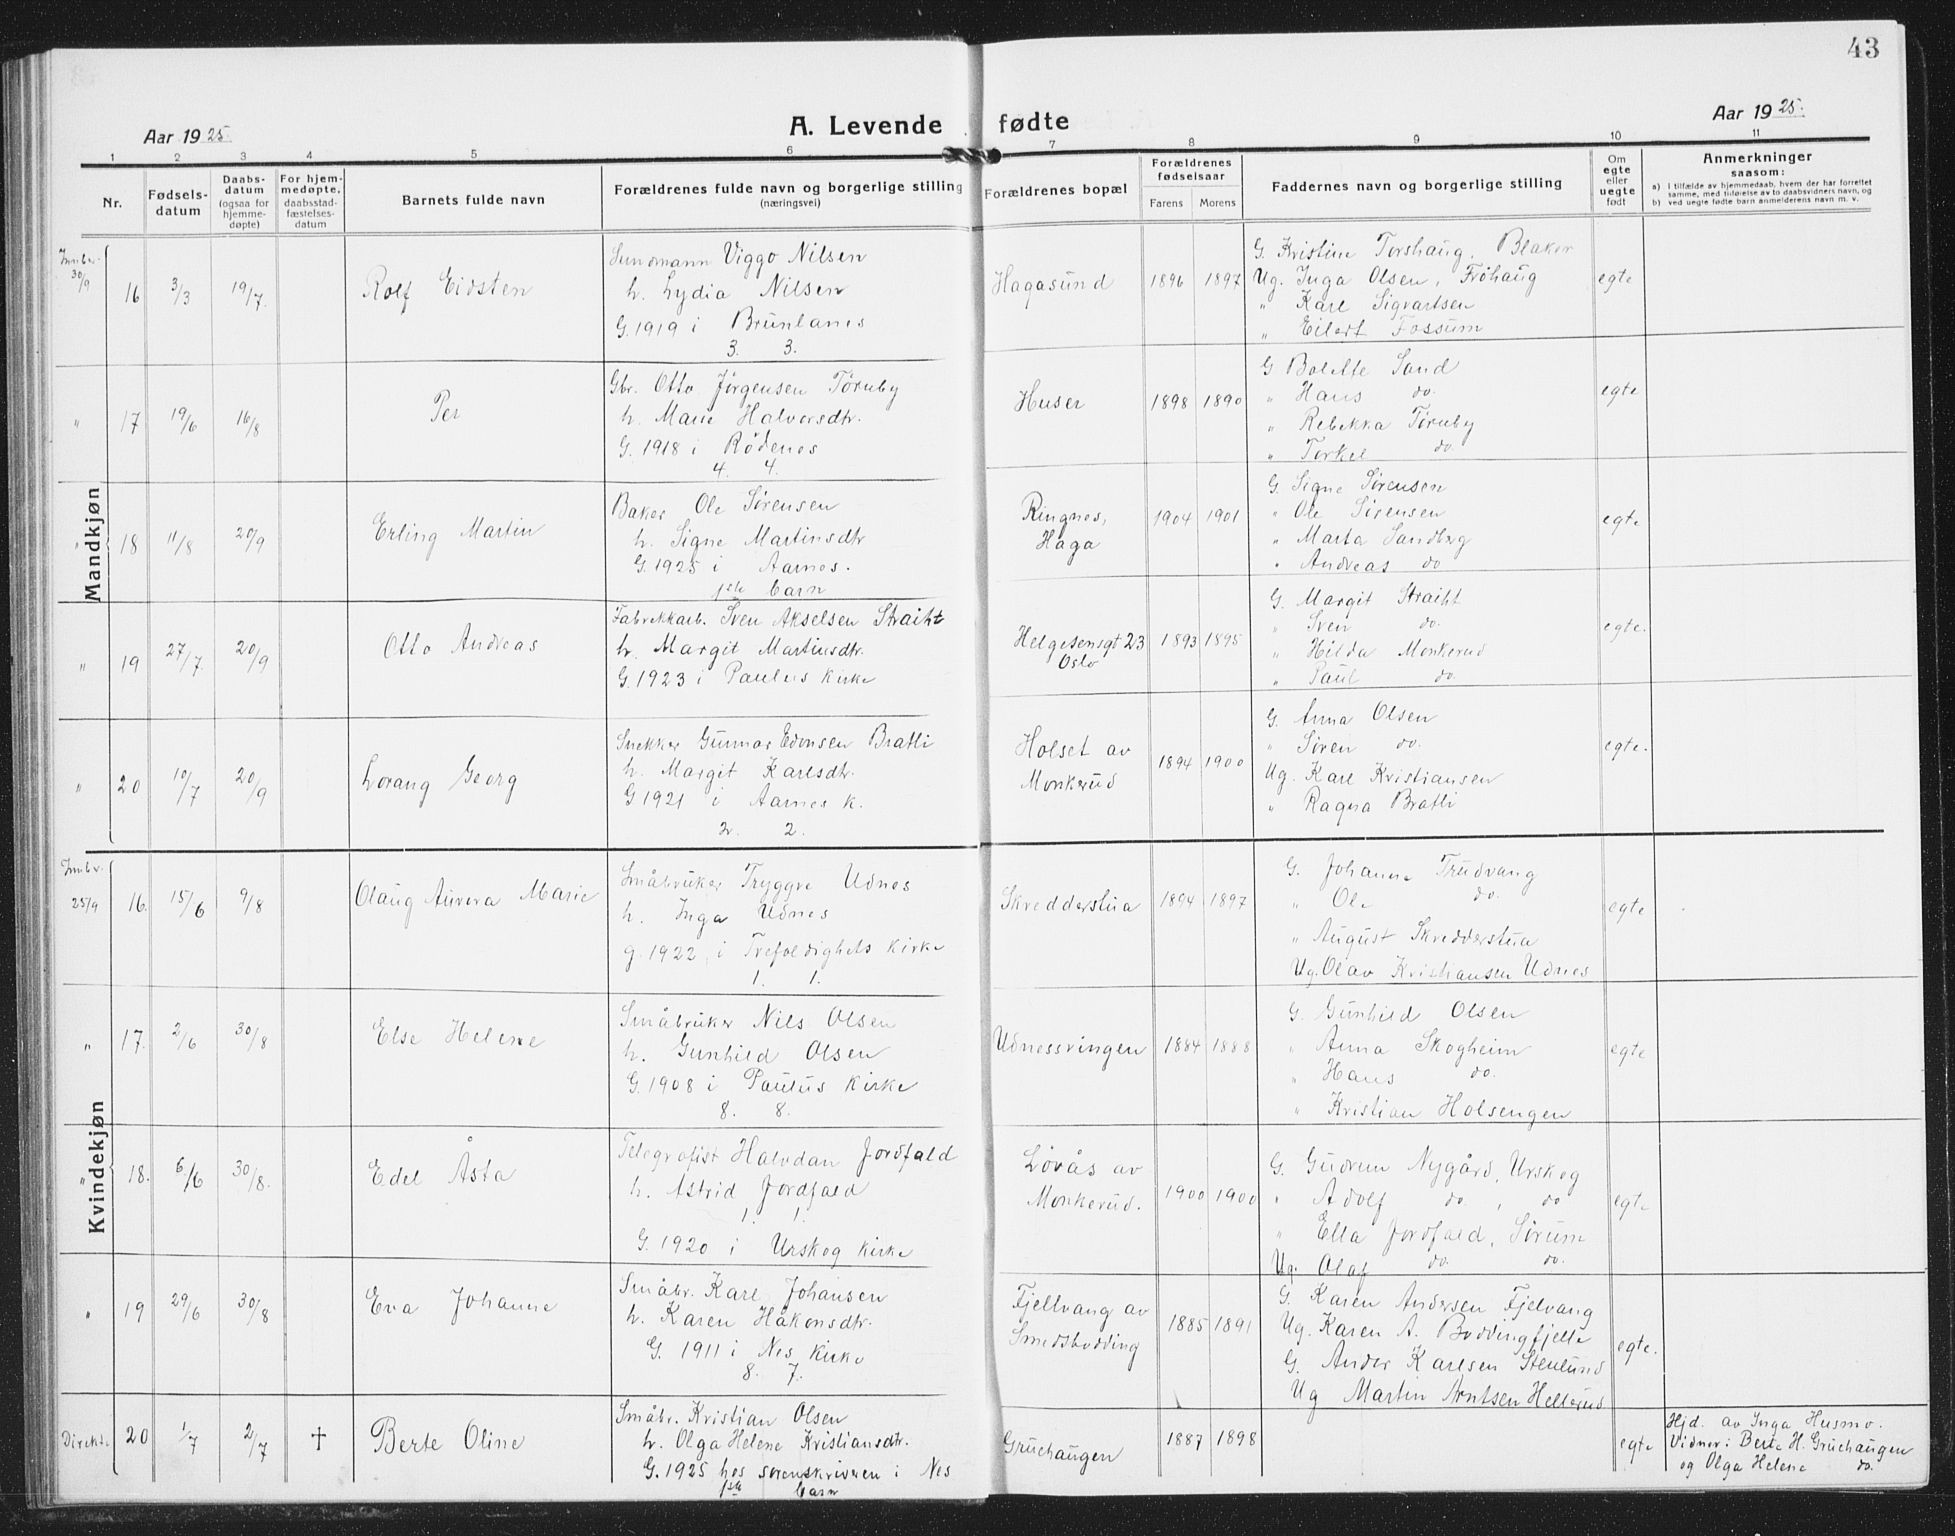 43
Aar 1925.
A. Levende fødte
Aar 1925.
1 2 3 4 5 6 7 8 9 10 11
Nr.
Fødsels-
datum
Daabs-
datum
(ogsaa for
hjemme-
døpte)
For hjem-
medøpte,
daabsstad-
fæstelses-
datum
Barnets fulde navn
Forældrenes fulde navn og borgerlige stilling
(næringsvei)
Forældrenes bopæl
Forældrenes
fødselsaar
Farens Morens
Faddernes navn og borgerlige stilling
Om
egte
eller
uegte
født
Anmerkninger
saasom:
a) i tilfælde av hjemmedaab, hvem der har forrettet
samme, med tilføielse av to daabsvidners navn, og
b) ved uegte fødte barn anmelderens navn m. v.
Mandkjøn
Innber.
30/9
16 3/3 19/7.
Rolf Eidsten
Viggo Nilsen
h. Lydia Nilsen
G. 1919 i Brunlanes
3. 3.
Hagasund
1896 1897
G. Kristine Torshaug, Blaker
Ug. Inga Olsen, Frøhaug
" Karl Sigvartsen
" Eilert Fossum
egte
" 17 19/6 16/8
Per
Gbr. Otto Jørgensen Tørnby
h. Marie Halvorsdtr.
G. 1918 i Rødenes
4. 4.
Huser
1898 1890
G Bolette Sand
" Hans do.
" Rebekka Tørnby
" Torkel do.
egte
" 18 11/8 20/9
Erling Martin
Baker Ole Sørensen
h. Signe Martinsdtr
G. 1925 i Aarnes.
1ste barn
Ringnes,
Haga
1904 1901
G. Signe Sørensen
" Ole Sørensen
" Marta Sandberg
" Andreas do
egte
" 19 27/7. 20/9
Otto Andreas
Fabrikkarb. Sven Akselsen Straiht
h. Margit Martinsdtr.
G. 1923 i Paulus Kirke
Helgesensgt 23
Oslo
1893 1895
G. Margit Straiht
" Sven do.
" Hilda Monkerud
" Paul do.
egte.
" 20 10/7 20/9
Lorang Georg
Snekker Gunnar Edvnsen Bratli
h. Margit Karlsdtr.
G. 1921 i Aarnes k.
2. 2.
Holset av
Monkerud
1894 1900
G. Anna Olsen
" Søren do.
Ug. Karl Kristiansen
" Ragna Bratli
egte.
Kvindekjøn
Innbr.
25/9
16. 15/6 9/8
Olaug Aurora Marie
Småbruker Tryggve Udnes
h. Inga Udnes
g. 1922, i Trefoldighets Kirke
1. 1.
Skredderstua
1894 1897
G. Johanne Trudvang
" Ole do.
" August Skredderstua
Ug. Olav Kristiansen Udnes
egte
" 17. 2/6 30/8
Else Helene
Småbruker Nils Olsen
h. Gunhild Olsen
G. 1908 i Paulus Kirke
8. 8.
Udnessvingen
1884 1888
G. Gunhild Olsen
" Anna Skogheim
" Hans do.
" Kristian Holsengen
egte
" 18. 6/6 30/8.
Edel Åsta
Telegrafist Halvdan Jordfald
h. Astrid Jordfald
1. 1.
G. 1920 i Urskog Kirke
Løvås av
Monkerud.
1900 1900
G. Gudrun Nygård, Urskog
" Adolf do. , do
" Ella Jordfald, Sørum
Ug. Olaf do. do.
egte
" 19 29/6 30/8
Eva Johanne
Småbr. Karl Johansen
h. Karen Håkonsdtr.
G. 1911 i Nes Kirke
8. 7.
Fjellvang av
Smedsbodding
1885 1891
G. Karen Andersen Fjelvang
Ug. Karen A. Boddingfjelle
G. Ander Karlsen Stenlund
Ug Martin Arntsen Hellerud
egte.
Direkte 20 1/7 2/7 †
Berte Oline
Småbr. Kristian Olsen
h. Olga Helene Kristiansdtr.
G. 1925 hos sorenskriveren i Nes
1ste barn
Gruehaugen
1887 1898
egte
Hjd. av Inga Husmo.
Vidner: Berte H. Gruehaugen
og Olga Helene do.